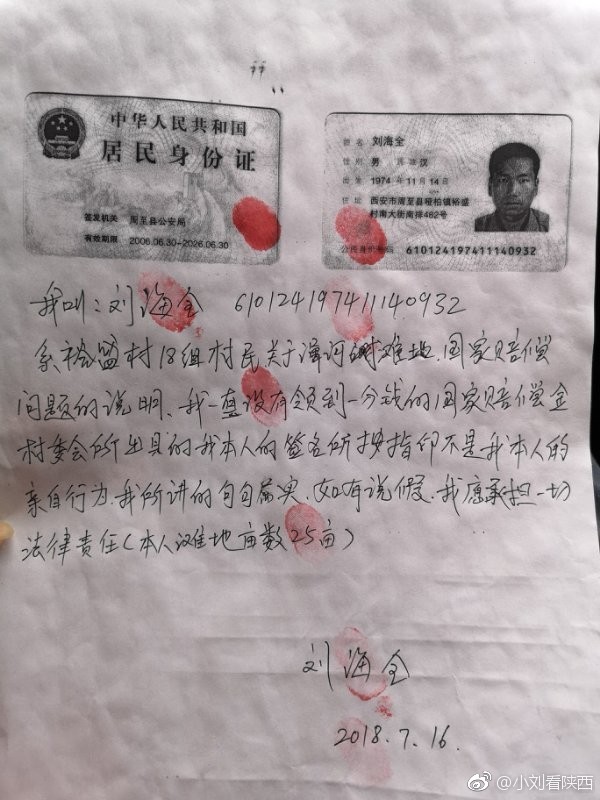 中华人民共和国
居民身份证
签发机关 周至县公安局
有效期限 2006.06.30-2026.06.30
姓名 刘海全
性别 男 民族 汉
出生 1974年11月14日
住址 西安市周至县桠柏镇裕盛
村南大街南排462号
公民身份号码 610124197411140932
我叫:刘海全 610124197411140932
系裕盛村18组村民关于河滩地.国家赔偿
问题的说明、我一直没有领到一分钱的国家赔偿金
村委会所出具的我本人的签名所按指印不是我本人的
亲自行为.我所讲的句句属实.如有说假.我愿承担一切
法律责任(本人滩地亩数25亩)
刘海全
2018.7.16.
@小刘看陕西